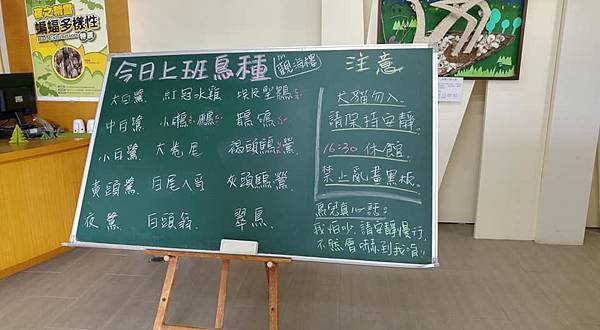 夜之精靈
蝙蝠多樣性
特展
今日上班鳥種
觀海樓
大白鷺 紅冠水雞 埃及聖䴉
中白鷺 小鸊鷉
小白鷺 大卷尾
黃頭鷺 白尾八哥 灰頭鷦鶯
夜鷺 白頭翁 翠鳥
注意
犬貓勿入。
請保持安靜。
16:30 休館。
禁止亂畫黑板。
鳥兒真心話:
我怕吵,請安靜慢行,
不然會嚇到我唷!